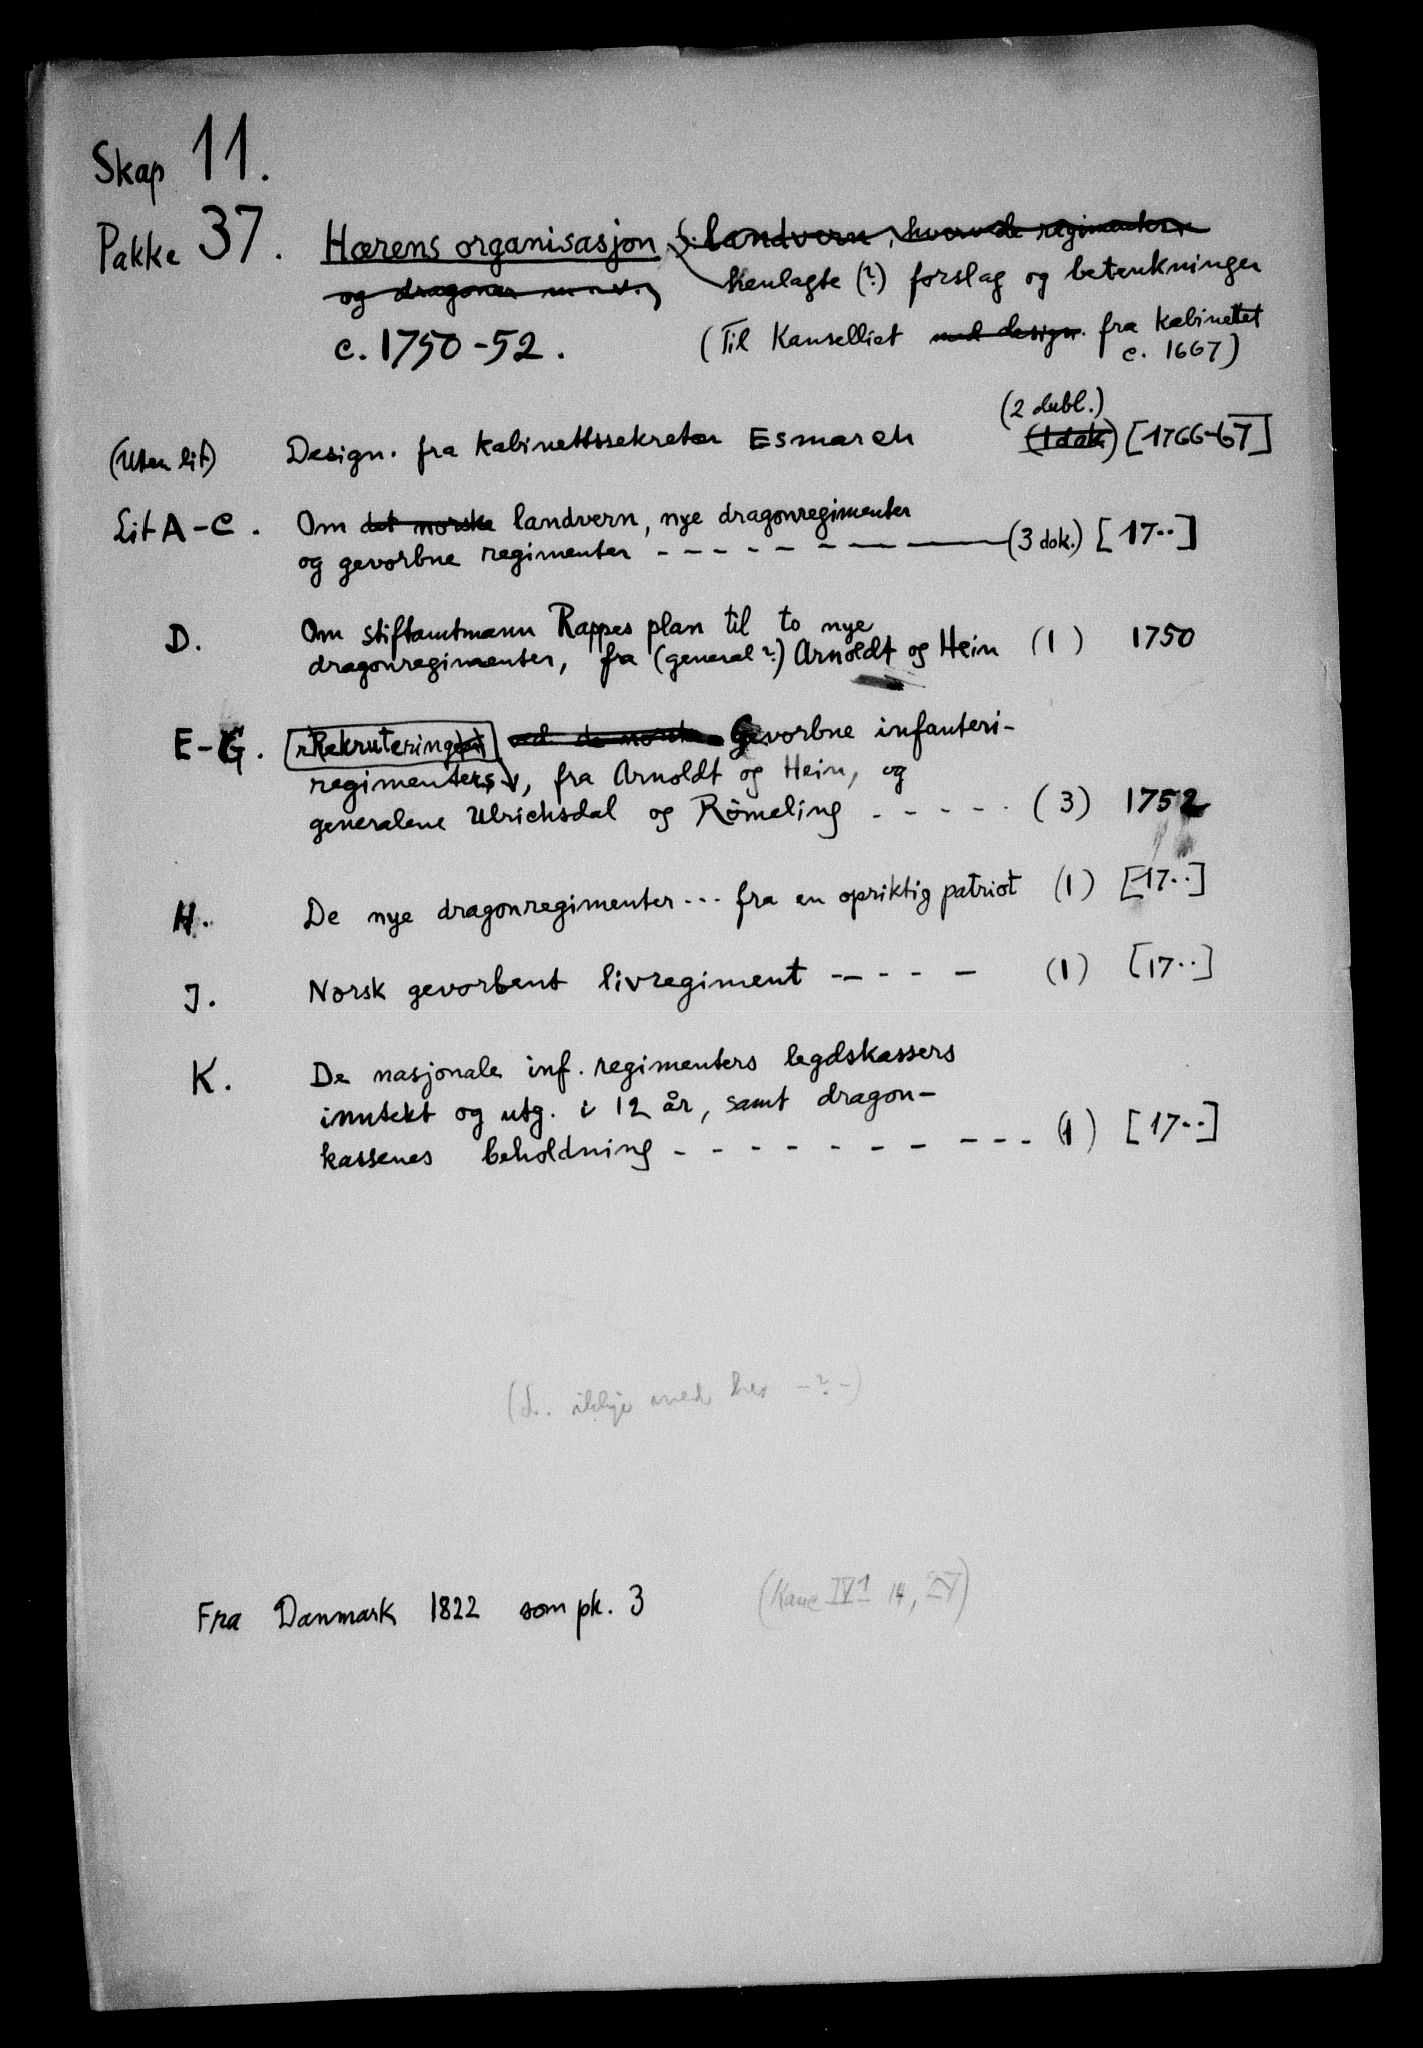 Skap 11.
Pakke 37. Hærens organisasjon : landvern, hvervede regimenter
og dragoner m.v. henlagte (?) forslag og betenkninger
c. 1750-52. (Til Kanselliet med design. fra kabinettet
c. 1667)
(2 dubl.)
(Uten lit) Design. fra kabinettssekretær Esmarch (1 dok) [1766-67]
Lit A-C. Om det norske landvern, nye dragonregimenter
og gevorbne regimenter - - - - - - - - - (3 dok.) [17..]
D. Om stiftamtmann Rappes plan til to nye
dragonregimenter, fra (general?) Arnoldt og Hein (1) 1750
E-G. Rekruteringen ved de norske Gevorbne infanteri-
regimenters, fra Arnoldt og Hein, og
generalene Ulrichsdal og Rømeling - - - - - (3) 1752
H. De nye dragonregimenter... fra en opriktig patriot (1) [17..]
J. Norsk gevorbent livregiment - - - - - (1) [17..]
K. De nasjonale inf. regimenters legdskassers
inntekt og utg. i 12 år, samt dragon-
kassenes beholdning - - - - - - - - - - (1) [17..]
(L. ikkje med her -?-)
Fra Danmark 1822 som pk. 3 (Kanc IV 1 14,